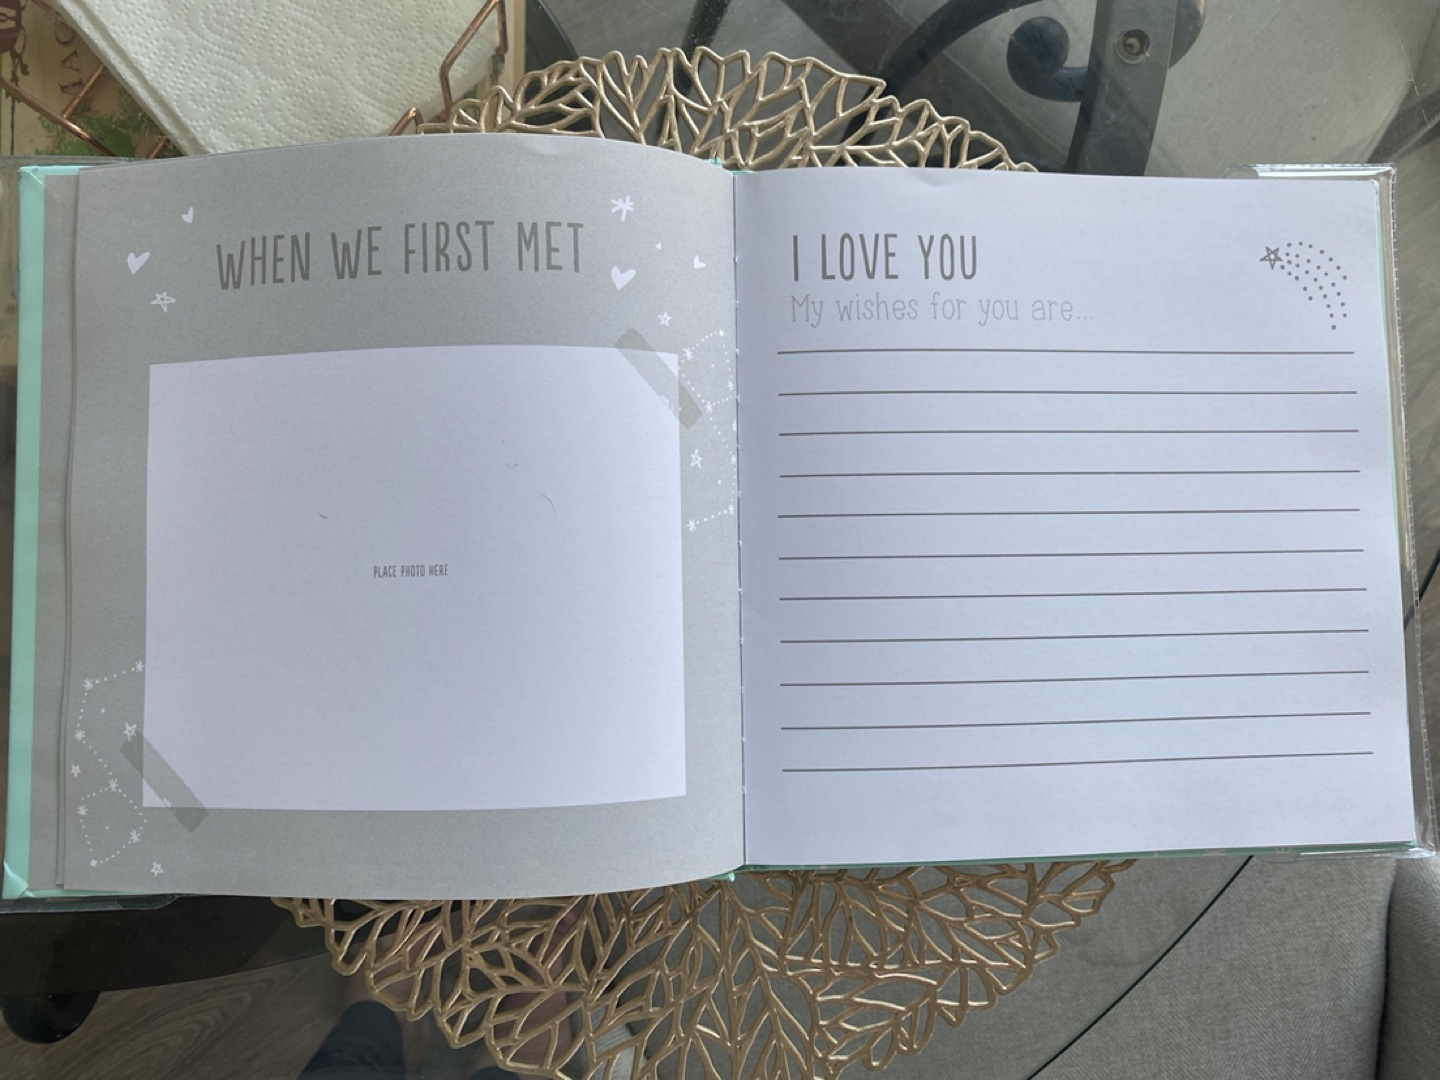 WHEN WE FIRST MET
PLACE PHOTO HERE
I LOVE YOU
My wishes for you are...